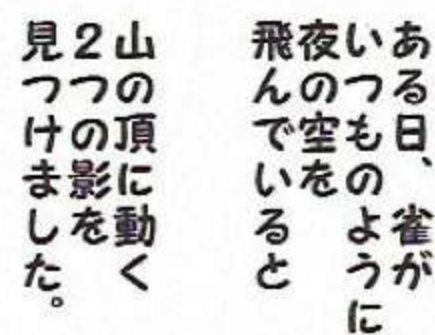 ある日、雀が
いつものように
夜の空を
飛んでいると
山の頂に動く
2つの影を
見つけました。